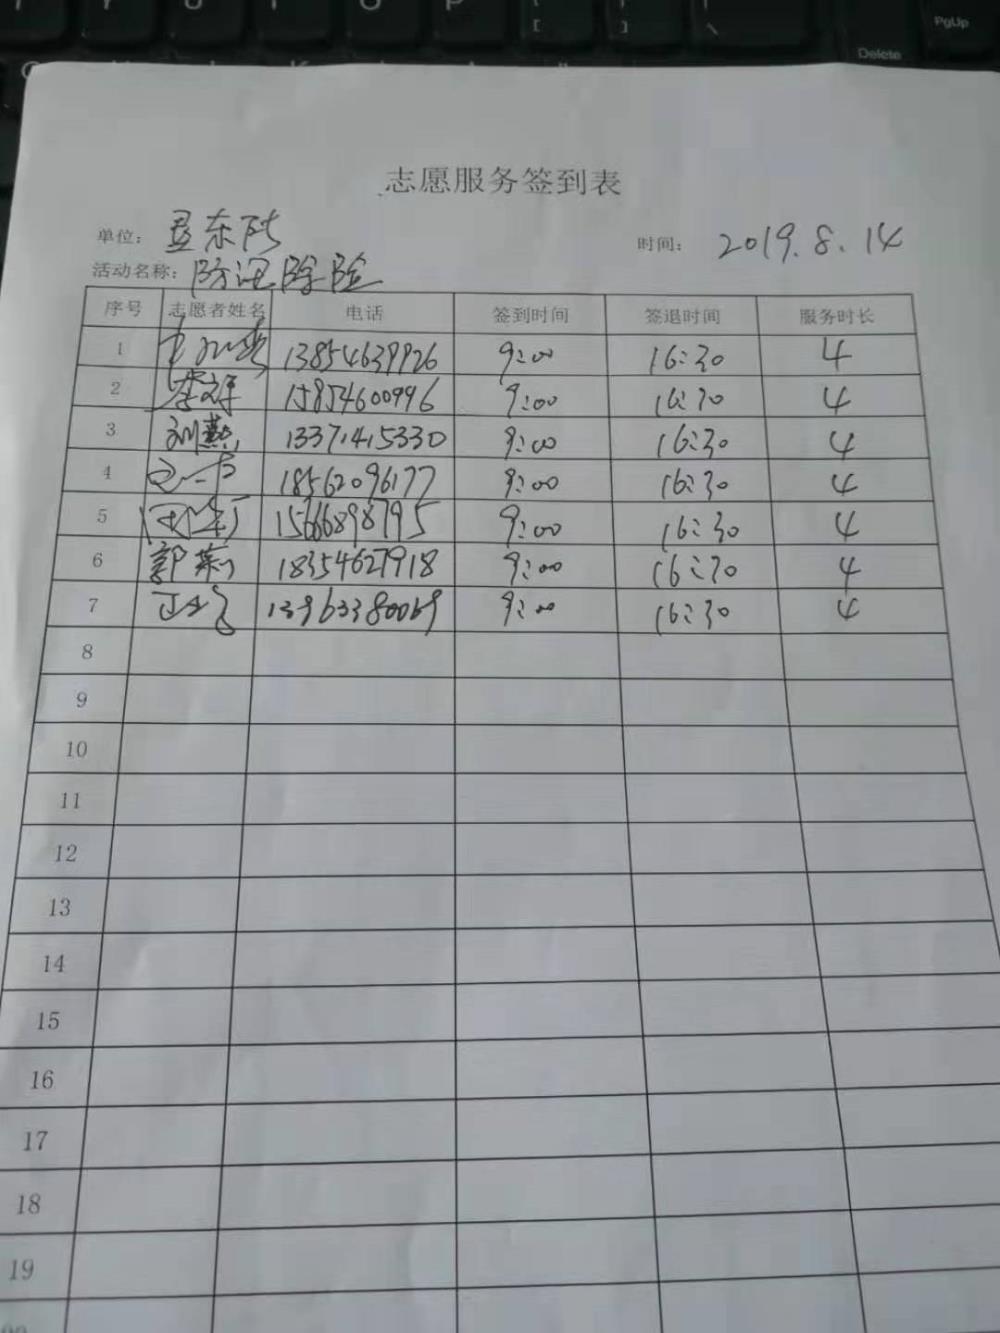 志愿服务签到表
单位: 时间: 2019.8.14
活动名称: 防汛除险
序号 志愿者姓名 电话 签到时间 签退时间 服务时长
1 13854639926 9:00 16:30 4
2 15854600996 9:00 16:30 4
3 刘燕 13371415330 9:00 16:30 4
4 18562096177 9:00 16:30 4
5 15666898795 9:00 16:30 4
6 郭莉 18354627918 9:00 16:30 4
7 13963380069 9:00 16:30 4
8
9
10
11
12
13
14
15
16
17
18
19